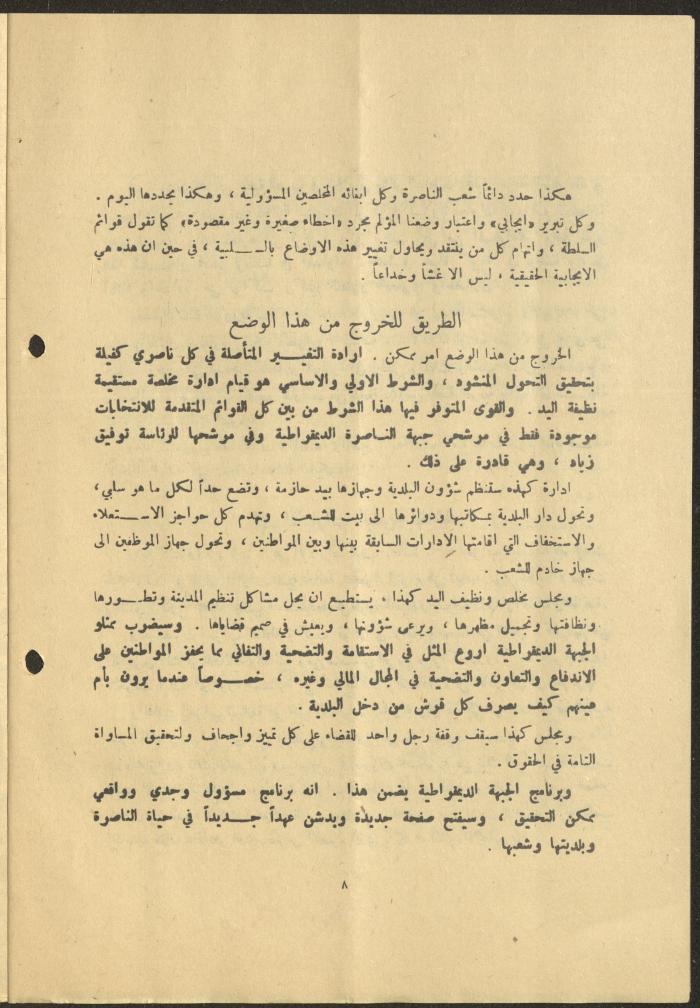 هكذا حدد دائماً شعب الناصرة وكل ابنائه المخلصين المسؤولية ، وهكذا يحددها اليوم .
وكل تبرير «ايجابي» واعتبار وضعنا المؤلم مجرد «اخطاء صغيرة وغير مقصودة» كما تقول قوائم
السلطة ، واتهام كل من ينتقد ويحاول تغيير هذه الاوضاع بالسلبية ، في حين ان هذه هي
الايجابية الحقيقية ، ليس الا غشاً وخداعاً .
الطريق للخروج من هذا الوضع
الخروج من هذا الوضع امر ممكن . ارادة التغيير المتأصلة في كل ناصري كفيلة
بتحقيق التحول المنشود ، والشرط الاولي والاساسي هو قيام ادارة مخلصة مستقيمة
نظيفة اليد . والقوى المتوفر فيها هذا الشرط من بين كل القوائم المتقدمة للانتخابات
موجودة فقط في مرشحي جبهة الناصرة الديمقراطية وفي مرشحها للرئاسة توفيق
زياد ، وهي قادرة على ذلك .
ادارة كهذه ستنظم شؤون البلدية وجهازها بيد حازمة ، وتضع حداً لكل ما هو سلبي ،
وتحول دار البلدية بمكاتبها ودوائرها الى بيت للشعب ، وتهدم كل حواجز الاستعلاء
والاستخفاف التي اقامتها الادارات السابقة بينها وبين المواطنين ، وتحول جهاز الموظفين الى
جهاز خادم للشعب .
ومجلس مخلص ونظيف اليد كهذا ، يستطيع ان يحل مشاكل تنظيم المدينة وتطورها
ونظافتها وتجميل مظهرها ، ويرعى شؤونها ، ويعيش في صميم قضاياها . وسيضرب ممثلو
الجبهة الديمقراطية اروع المثل في الاستقامة والتضحية والتفاني بما يحفز المواطنين على
الاندفاع والتعاون والتضحية في المجال المالي وغيره ، خصوصاً عندما يرون بأم
عينهم كيف يصرف كل قرش من دخل البلدية .
ومجلس كهذا سيقف وقفة رجل واحد للقضاء على كل تمييز واجحاف ولتحقيق المساواة
التامة في الحقوق .
وبرنامج الجبهة الديمقراطية يضمن هذا . انه برنامج مسؤول وجدي وواقعي
ممكن التحقيق ، وسيفتح صفحة جديدة ويدشن عهداً جديداً في حياة الناصرة
وبلديتها وشعبها .
٨